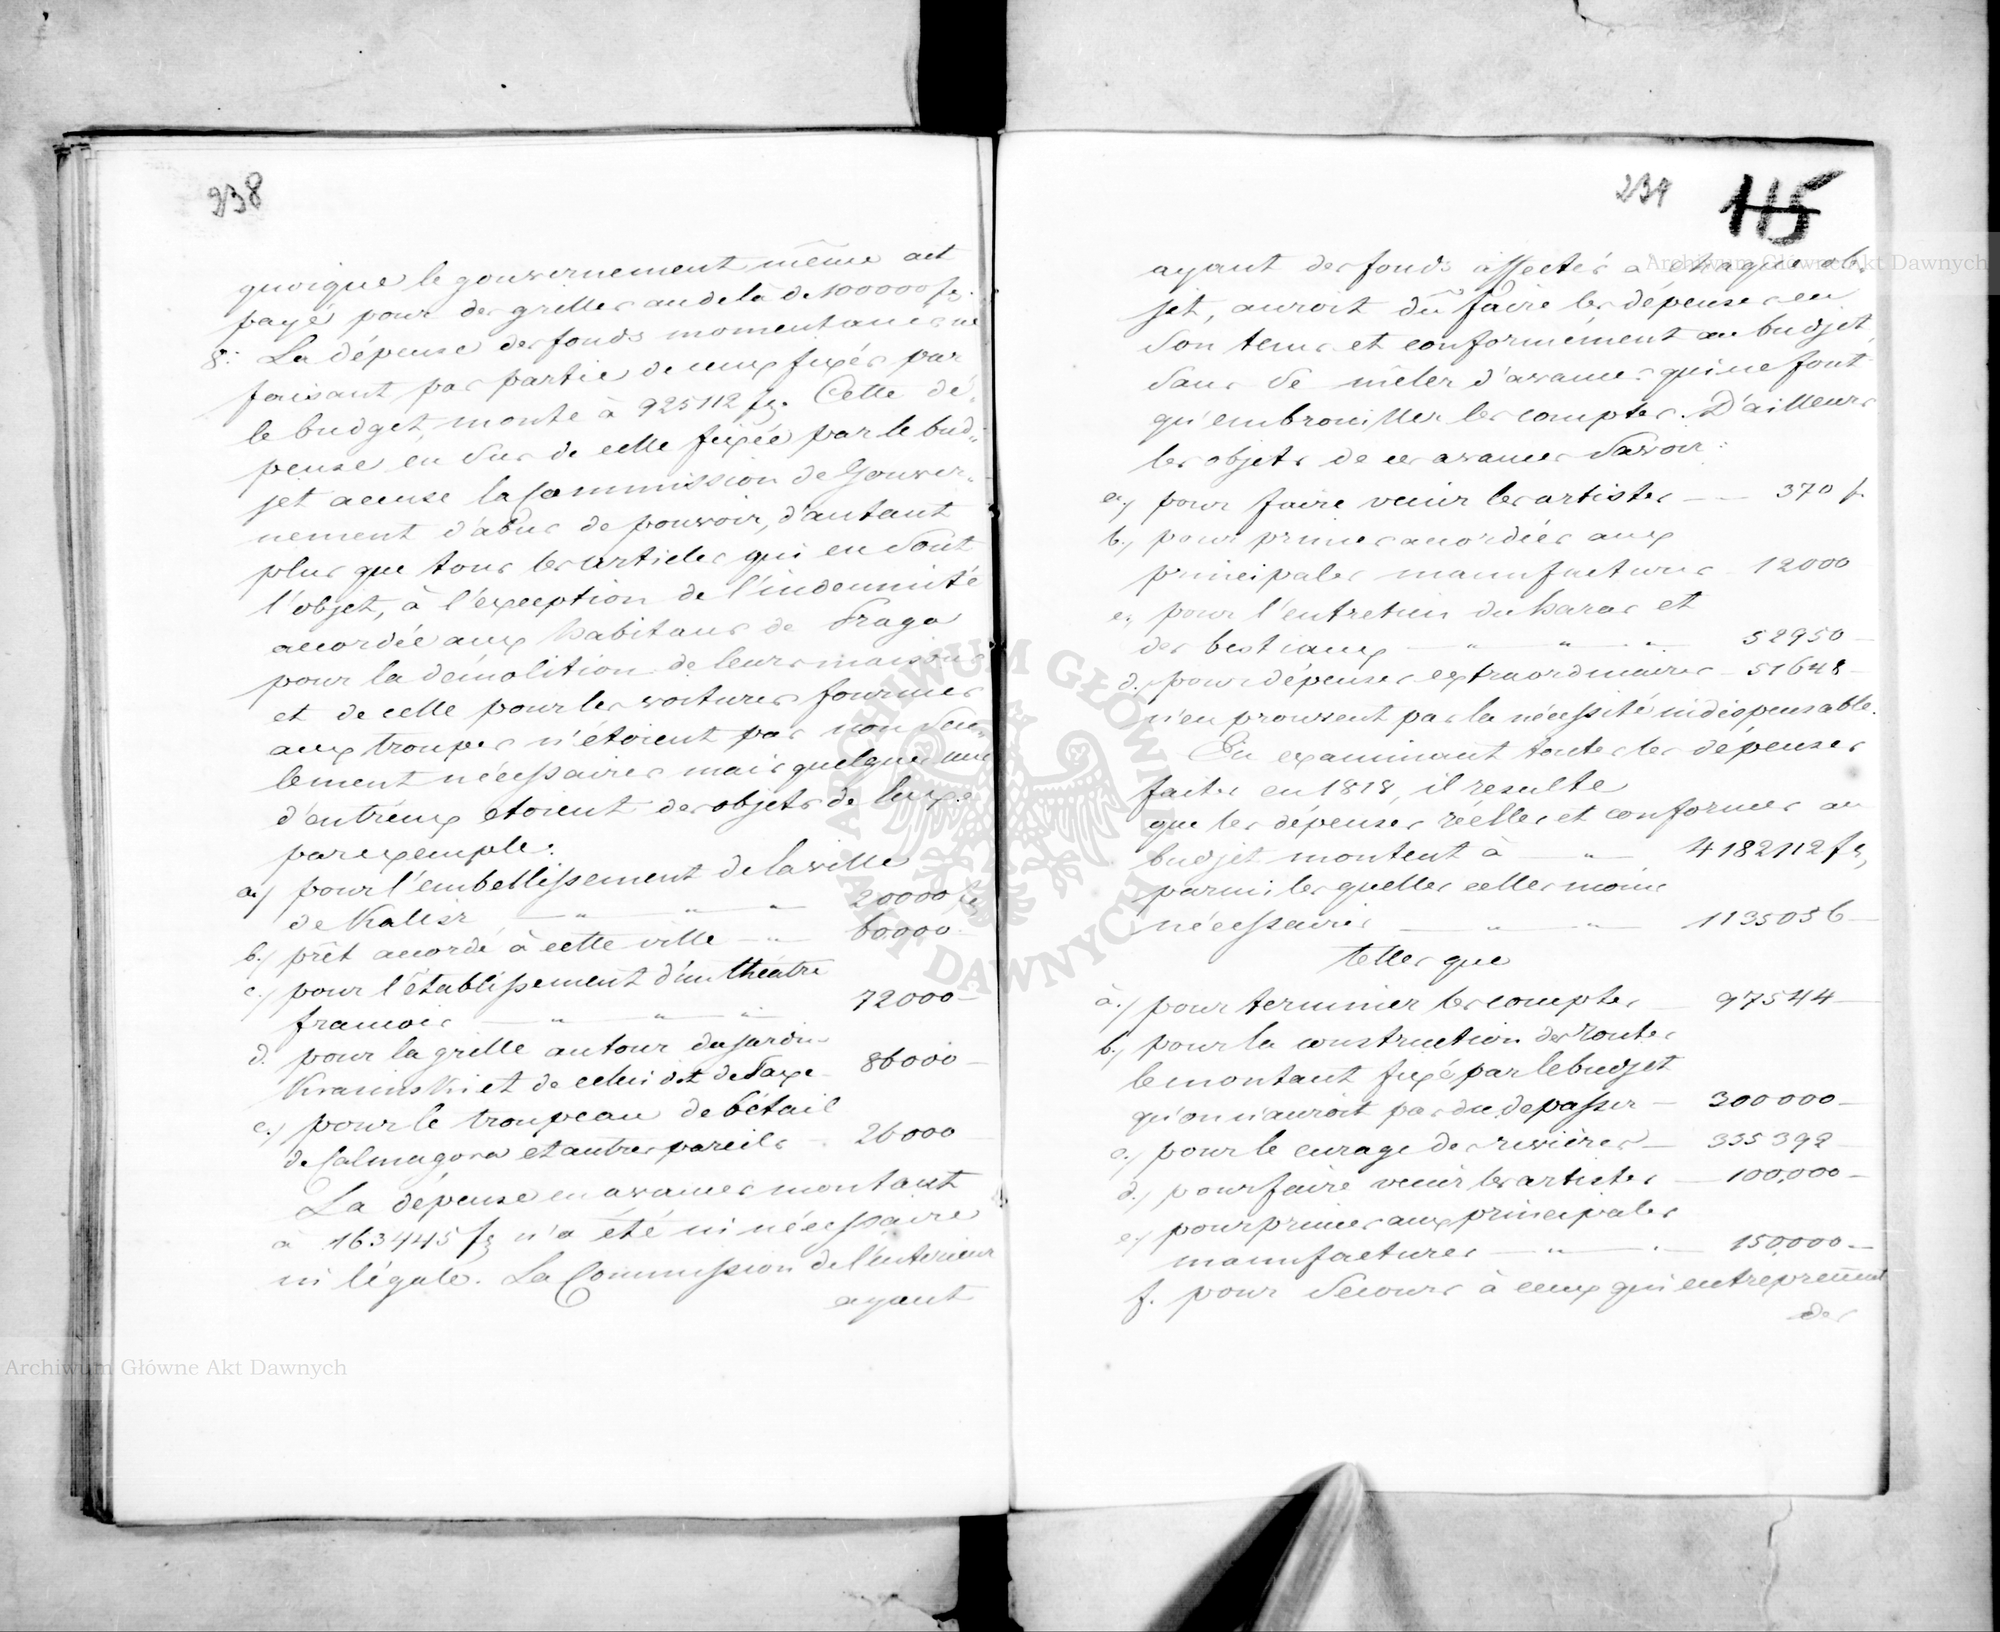 238
quoique le gouvernement même ait
payé pour des grilles au delà de 100000 fl.
8. La dépense des fonds momentanés ne
faisant pas partie de ceux fixés par
le budget, monte à 925112 fl. Cette dé-
pense en sus de celle fixée par le bud-
jet accuse la Commission de Gouver-
nement d'abus de pouvoir, d'autant
plus que tous les articles qui en sont
l'objet, à l'exception de l'indemnité
accordée aux habitans de Praga
pour la démolition de leurs maisons
et de celle pour les voitures fournies
aux troupes n'étoient pas non seu-
lement nécessaires mais quelques uns
d'entr'eux etoient des objets de luxe
par exemple:
a) pour l'embellissement de la ville
de Kalisz — " " " 20000 fl.
b) prêt accordé à cette ville — " 60000
c.) pour l'établissement d'un théatre
francois — " " " 72000 —
d. pour la grille autour du jardin
Krasinski et de celui dit de Saxe 86000 —
e.) pour le troupeau de bétail
de Calmugora et autres pareils 26000
La dépense en avances montant
à 163445 fl n'a été ni nécessaire
ni légale. La Commission de l'interieur
ayant
239 115
ayant des fonds affectés à chaque ob-
jet, auroit dû faire les dépenses en
son tems et conformément au budjet
sans se mêler d'avances qui ne font
qu'embrouiller les comptes. D'ailleurs
les objets de ces avances savoir:
a) pour faire venir les artistes — — 370 f.
b.) pour primes accordées aux
principales manufactures 12000
c) pour l'entretien du haras et
des bestiaux — " " " 52950 —
d.) pour dépenses extraordinaires — 51648 —
n'en prouvent pas la nécessité indispensable.
En examinant toutes les dépenses
faites en 1818, il resulte
que les dépenses réelles et conformes au
budjet montent à — " — 4182112 fl,
parmi les quelles celles moins
nécessaires — " " — 1135036 —
telles que
a.) pour terminer les comptes — 97544 —
b.) pour la construction des routes
le montant fixé par le budjet
qu'on n'auroit pas du depasser — 300000 —
c.) pour le curage des rivières — 335392 —
d.) pour faire venir les artistes — 100,000 —
e) pour primes aux principales
manufactures — " " 150,000 —
f. pour secours à ceux qui entreprennent
des
Archiwum Główne Akt Dawnych
Archiwum Główne Akt Dawnych
ARCHIWUM GŁÓWNE AKT DAWNYCH